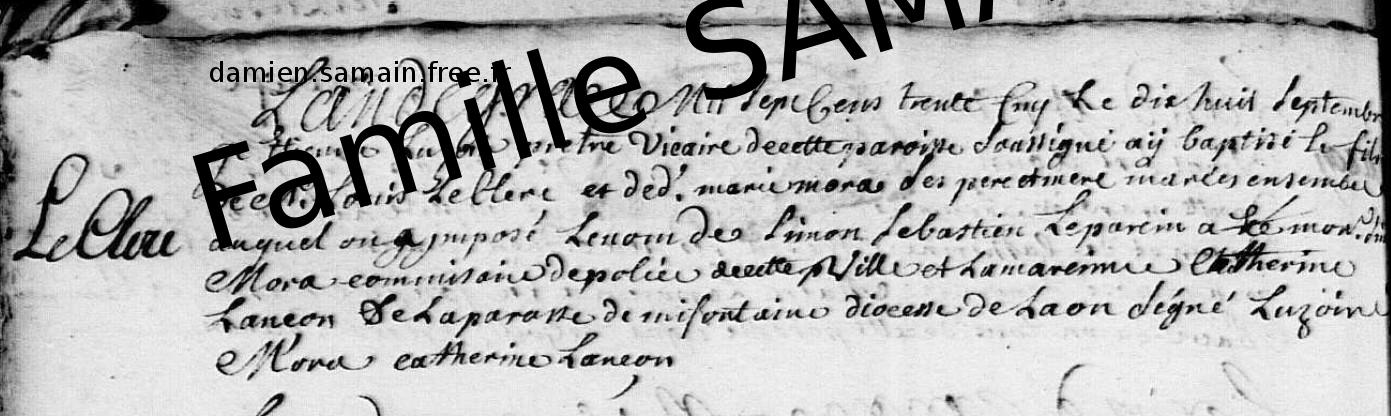 damien.samain.free.fr
Famille SAMA
Lan de grace Mil sept Cens trente Cinq Le dix huit Septembre
pretre Vicaire decette paroisse soussigné aÿ baptisé le fils
Louis LeClerc et ded. marie mora ses pere et mere mariés ensemble
LeClerc
auquel on a imposé Lenom de Simon Sebastien Leparein a
Mora commisaire depolice decette Ville et Lamareinne Catherine
Lancon De Laparoisse de misontaine diocesse de Laon signé Luzoin
Mora catherine Lancon